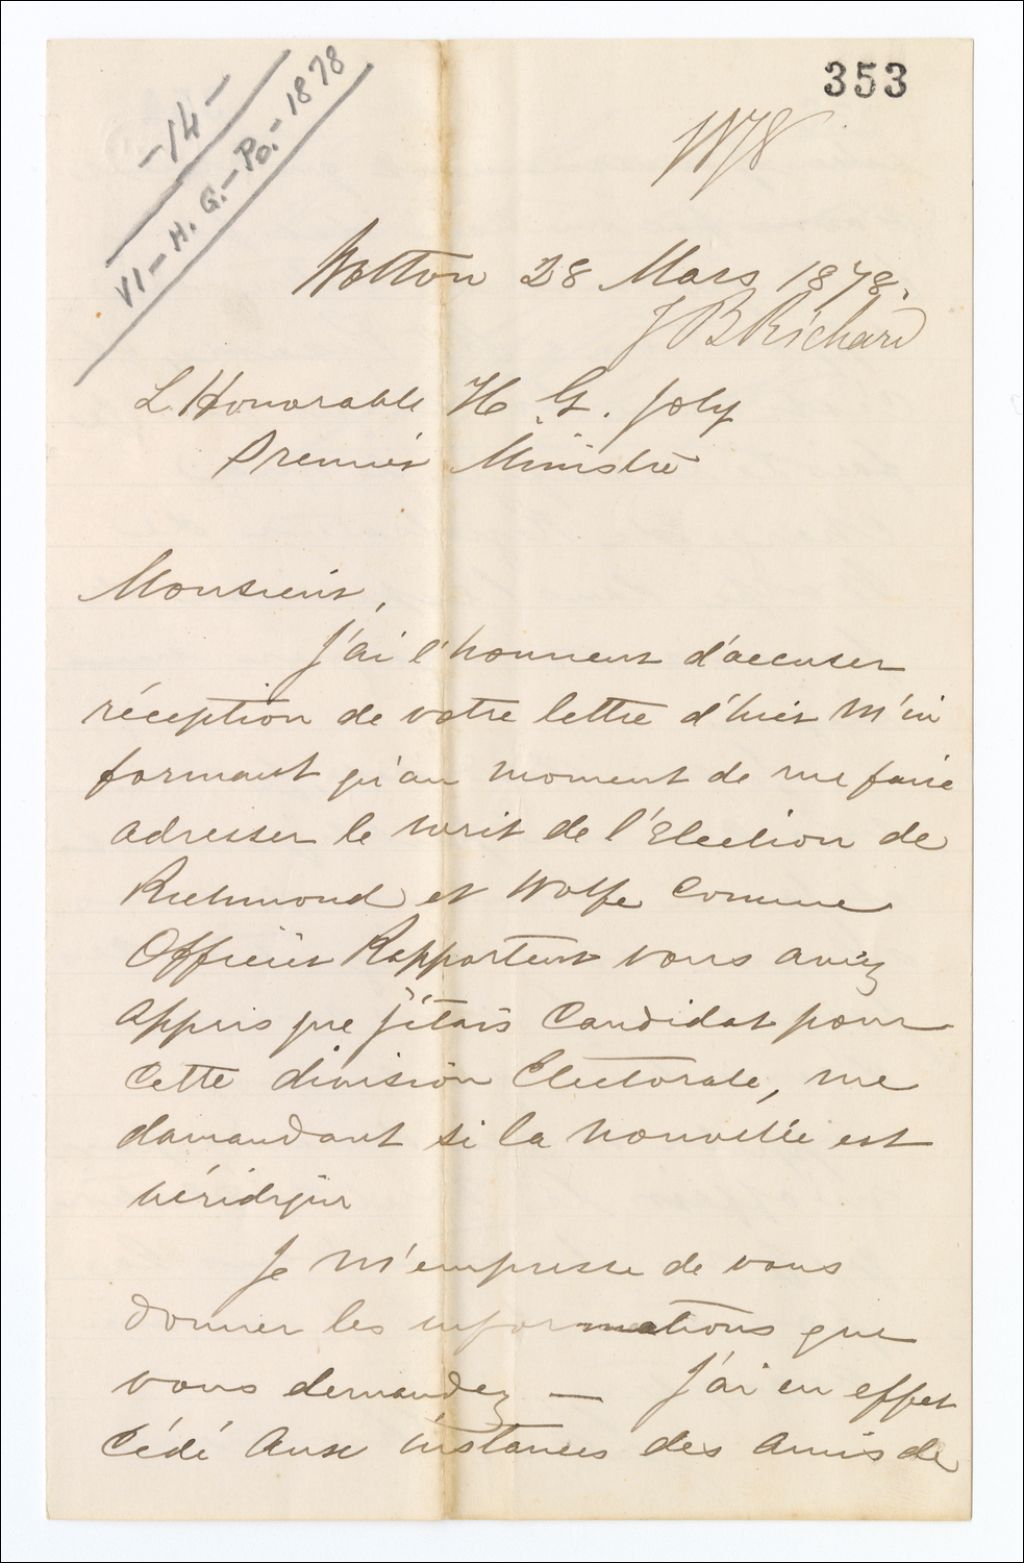 353
-14-
VI-H.G.-Po.-1878
Wotton 28 Mars 1878.
J B Richard
L Honorable H G. Joly
Premier Ministre
Monsieur,
J'ai l'honneur d'accuser
réception de votre lettre d'hier m'in
formant qu'au moment de me faire
adresser le writ de l'Election de
Richmond et Wolfe comme
Officier Rapporteur vous aviez
appris que j'étais Candidat pour
cette division Electorale, me
damandant si la nouvelle est
véridique
Je m'empresse de vous
donner les informations que
vous demandez — J'ai en effet
cédé aux instances des amis de